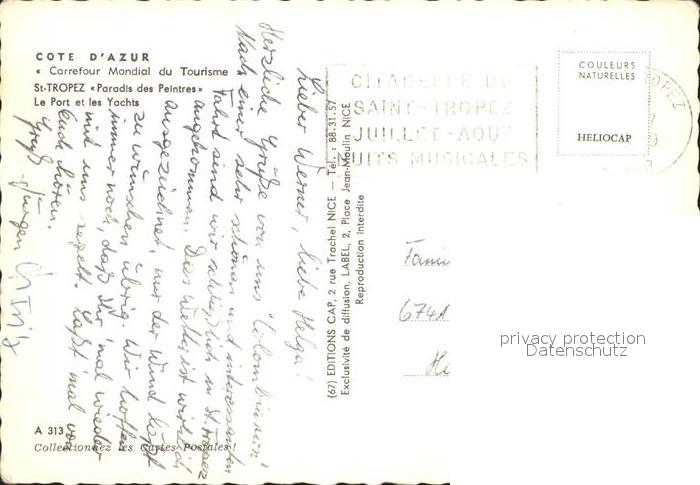 COTE D'AZUR
« Carrefour Mondial du Tourisme
St-TROPEZ «Paradis des Peintres»
Le Port et les Yachts
CITADELLE DE
SAINT-TROPEZ
JUILLET-AOUT
NUITS MUSICALES
COULEURS
NATURELLES
HELIOCAP
OPEZ
(67) EDITIONS CAP, 2 rue Trachel NICE — Tél. : 88.31.57
Exclusivité de diffusion, LABEL, 2, Place Jean-Moulin NICE
Reproduction interdite
Lieber Werner, liebe Helga!
Herzliche Grüße von uns
Nach einer sehr schönen und interessanten
Fahrt sind wir schließlich in St. Tropez
angekommen. Das Wetter ist wirklich
ausgezeichnet, nur der Wind läßt
zu wünschen übrig. Wir hoffen
immer noch, daß Ihr mal wieder
mit uns segelt. Laßt mal von
Euch hören.
Gruß Jürgen
Fami
674
He
privacy protection
Datenschutz
A 313
Collectionnez les Cartes Postales !